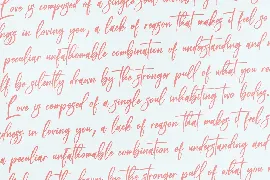 Love is composed of a single soul inhabiting two bodies.
dness in loving you, a lack of reason that makes it feel so
a peculiar unfathomable combination of understanding and
lt be silently drawn by the stronger pull of what you r
Love is composed of a single soul inhabiting two bodies.
dness in loving you, a lack of reason that makes it feel s
a peculiar unfathomable combination of understanding and
be silently drawn by the stronger pull of what you